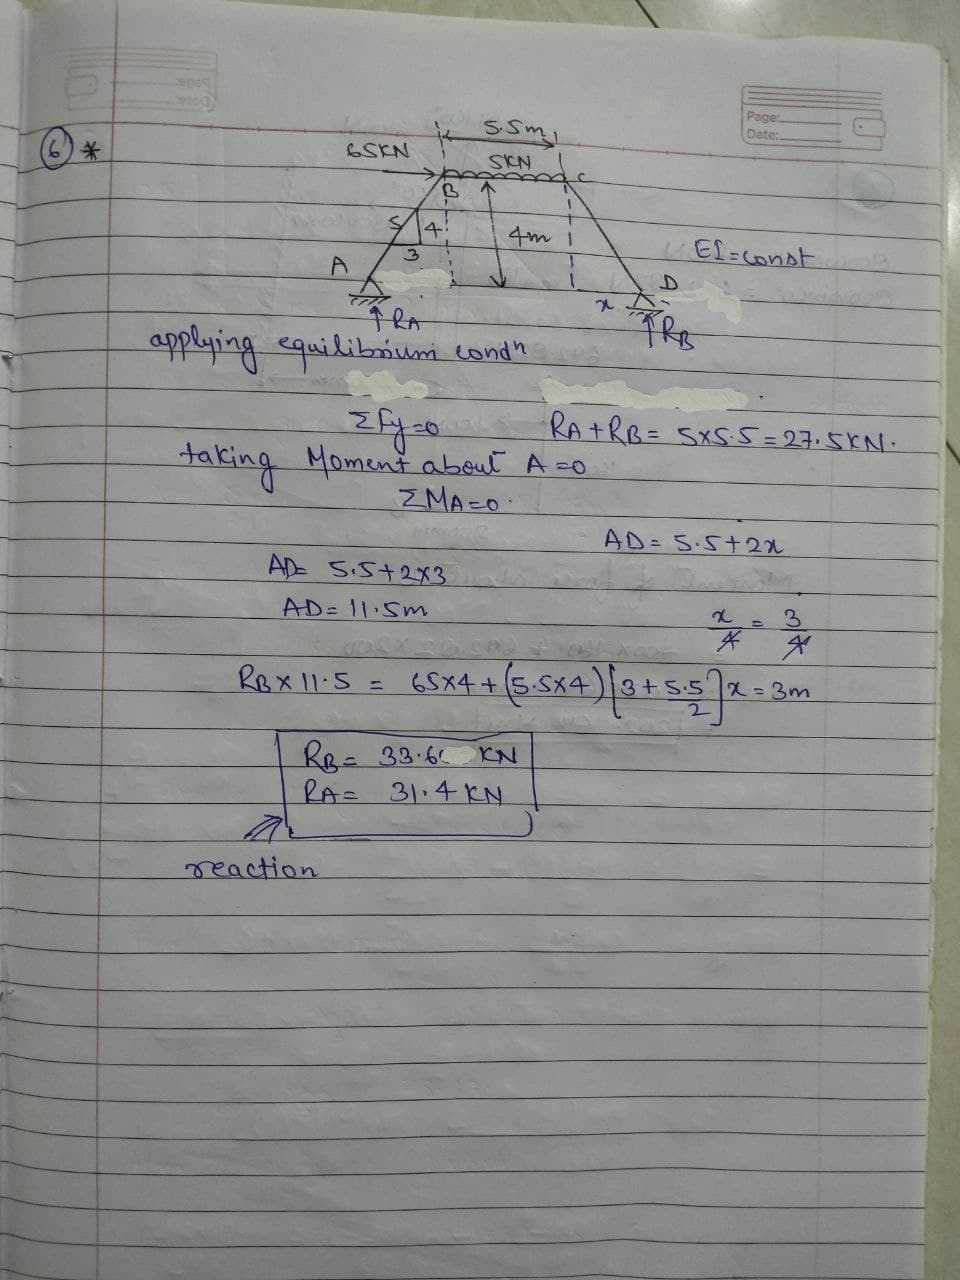 Page:
Date:
6 *
5.5m
65KN
5KN
B
C
5
4
3
4m
EI=const
A
D
x
RA
RB
applying equilibrium condn
ΣFy=0 RA+RB= 5x5.5=27.5KN.
taking Moment about A=0
ΣMA=0.
AD= 5.5+2x
AD= 5.5+2x3
AD=11.5m
x/4 = 3/4
RBx11.5 = 65x4+(5.5x4)[3+5.5/2] x=3m
RB= 33.6 KN
RA= 31.4 KN
reaction